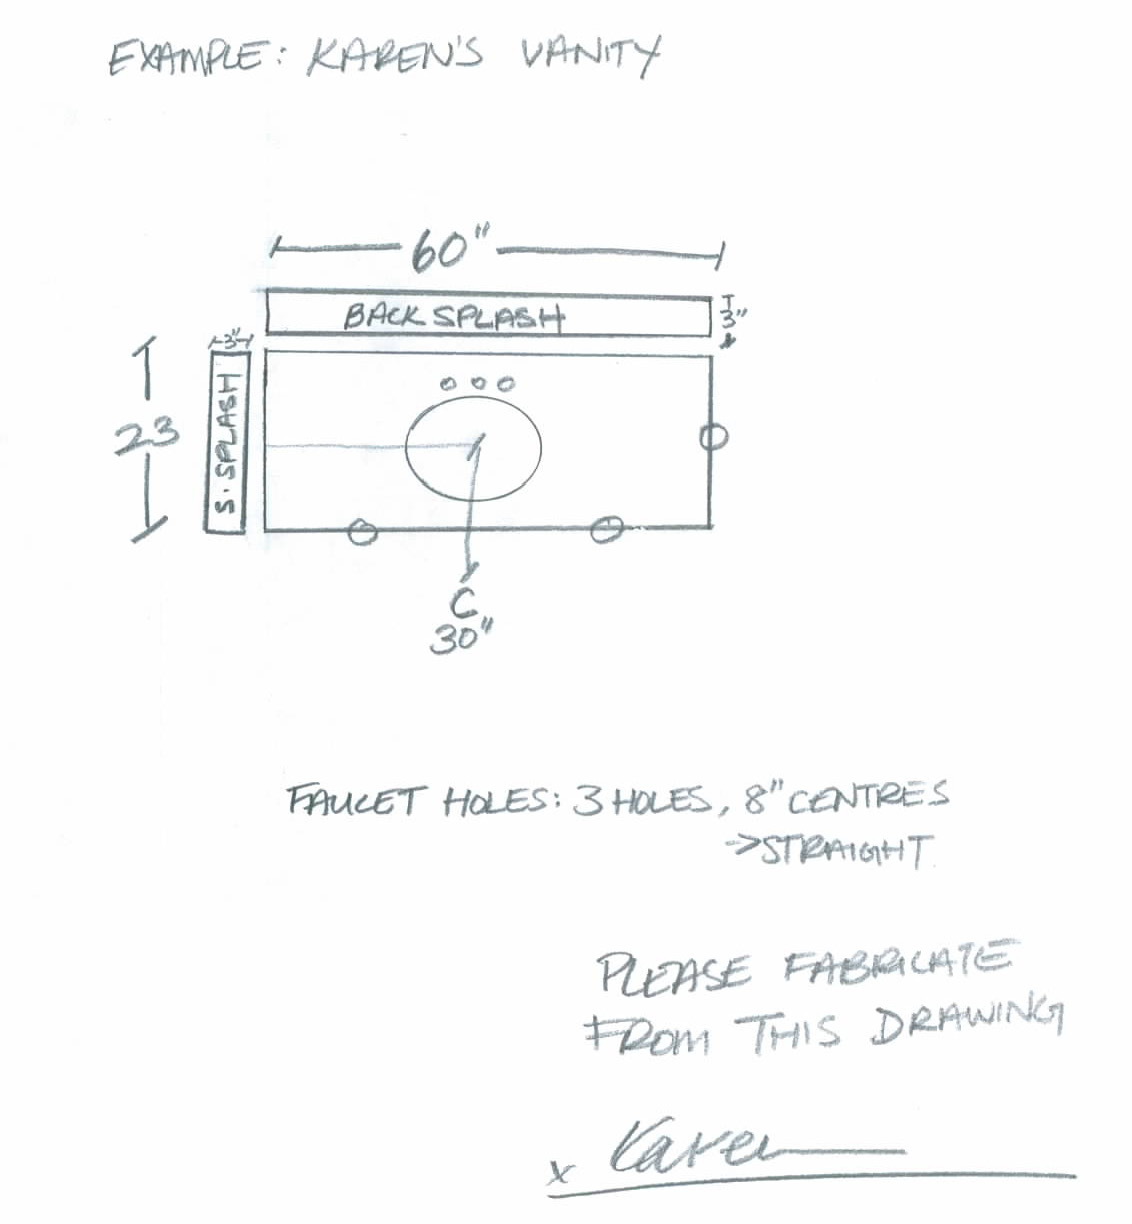 EXAMPLE: KAREN'S VANITY
60"
BACK SPLASH
3"
3"
23
S. SPLASH
C
30"
FAUCET HOLES: 3 HOLES, 8" CENTRES
->STRAIGHT
PLEASE FABRICATE
FROM THIS DRAWING
x Karen